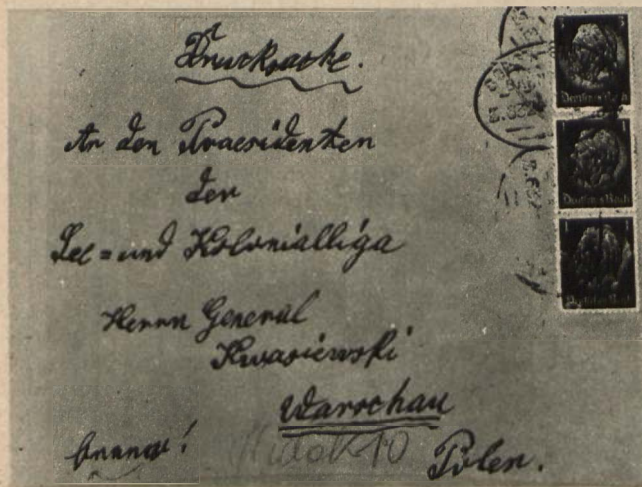 Drucksache.
An den Praesidenten
der
See= und Kolonialliga
Herrn General
Kwasiewski
Warschau
Widok 10
Polen.
Deutsches Reich
Deutsches Reich
Deutsches Reich